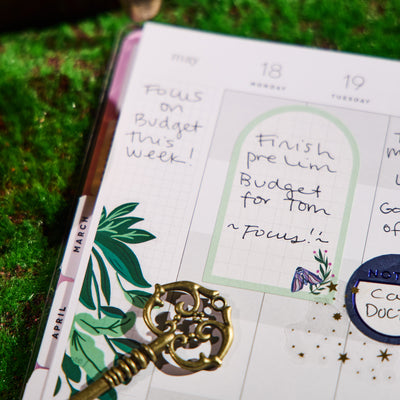 may
18
MONDAY
19
TUESDAY
Focus
on
Budget
this
week!
Finish
prelim
Budget
for Tom
~Focus!!~
MARCH
APRIL
NOT
Ca
DOC
Go
of